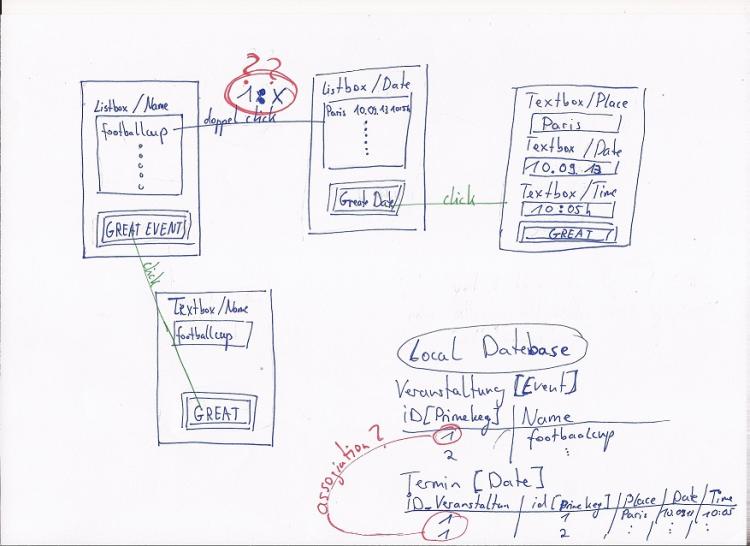 ??
1:X
Listbox/Name
footballcup
GREAT EVENT
doppel click
Listbox/Date
Paris 10.09.13 1005h
Greate Date
click
Textbox/Place
Paris
Textbox/Date
10.09.13
Textbox/Time
10:05h
GREAT
click
Textbox/Name
footballcup
GREAT
Local Datebase
Veranstaltung [Event]
iD[Primekey] Name
1 footbaalcup
2
assoziation?
Termin [Date]
iD_Veranstaltun / id[Primekey] / Place / Date / Time
1 1 Paris / 10.09.13 / 10:05
1 2